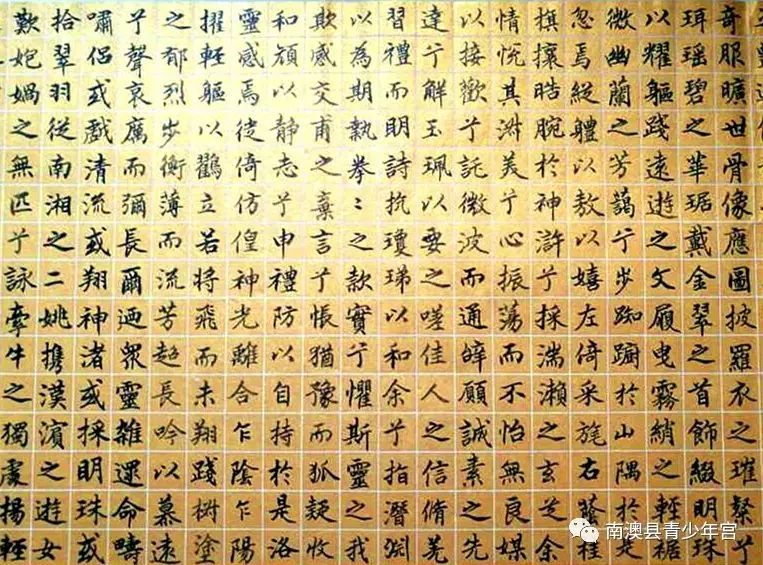 奇服曠世骨像應圖披羅衣之璀粲兮
珥瑶碧之華琚戴金翠之首飾綴明珠
以耀軀踐遠遊之文履曳霧綃之輕裾
微幽蘭之芳藹兮步踟躕於山隅於是
忽焉縱體以敖以嬉左倚采旄右蔭桂
旗攘皓腕於神滸兮採湍瀨之玄芝余
情悅其淑美兮心振蕩而不怡無良媒
以接歡兮託微波而通辭願誠素之先
達兮解玉珮以要之嗟佳人之信脩羌
習禮而明詩抗瓊珶以和余兮指潛淵
以為期執拳〻之款實兮懼斯靈之我
欺感交甫之棄言兮悵猶豫而狐疑收
和顏以静志兮申禮防以自持於是洛
靈感焉徙倚仿偟神光離合乍陰乍陽
擢輕軀以鶴立若將飛而未翔踐椒塗
之郁烈步衡薄而流芳超長吟以慕遠
兮聲哀厲而彌長爾迺眾靈雜遝命疇
嘯侶或戲清流或翔神渚或採明珠或
拾翠羽從南湘之二姚攜漢濱之遊女
歎匏媧之無匹兮詠牽牛之獨處揚輕
南澳县青少年宫